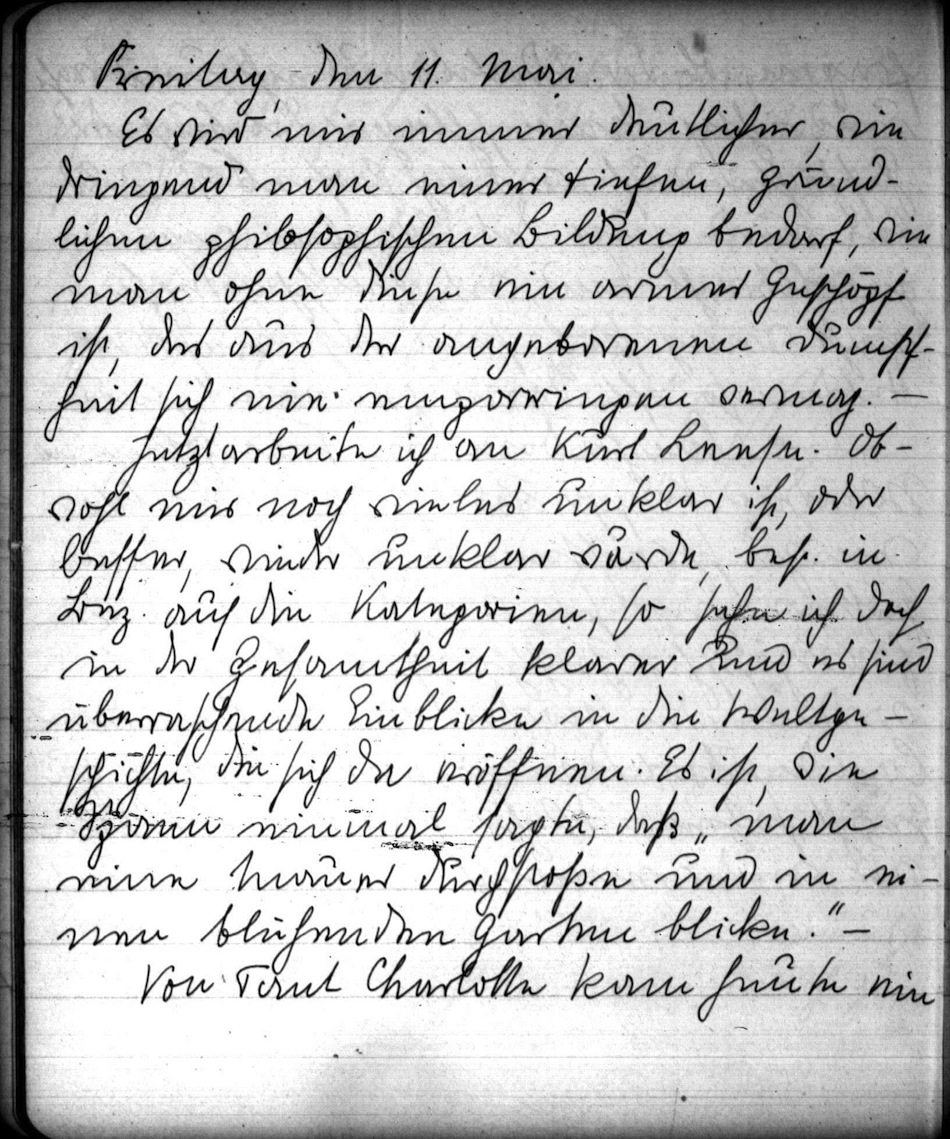 Freitag, den 11. Mai.
Es wird mir immer deutlicher, wie
dringend man einer tiefen, gründ-
lichen philosophischen Bildung bedarf, wie
man ohne diese ein armes Geschöpf
ist, das aus der angeborenen Dumpf-
heit sich nie emporringen vermag. —
Jetzt arbeite ich an Kurt Leese. Ob-
wohl mir noch vieles unklar ist, oder
besser, wieder unklar würde, bes. in
Bez. auf die Kategorien, so sehe ich doch
in der Gesamtheit klarer und es sind
überraschende Einblicke in die Weltge-
schichte, die sich da eröffnen. Es ist, wie
einmal sagte, daß „man
eine Mauer durchstoße und in ei-
nen blühenden Garten blicke." —
Von Tant Charlotte kam heute ein